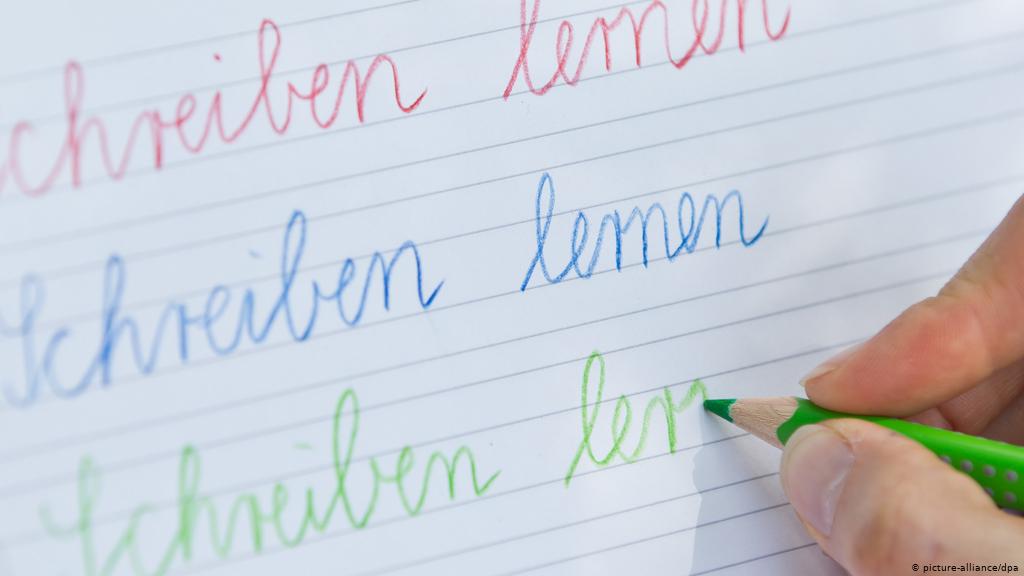 Schreiben lernen
Schreiben lernen
Schreiben lern
© picture-alliance/dpa